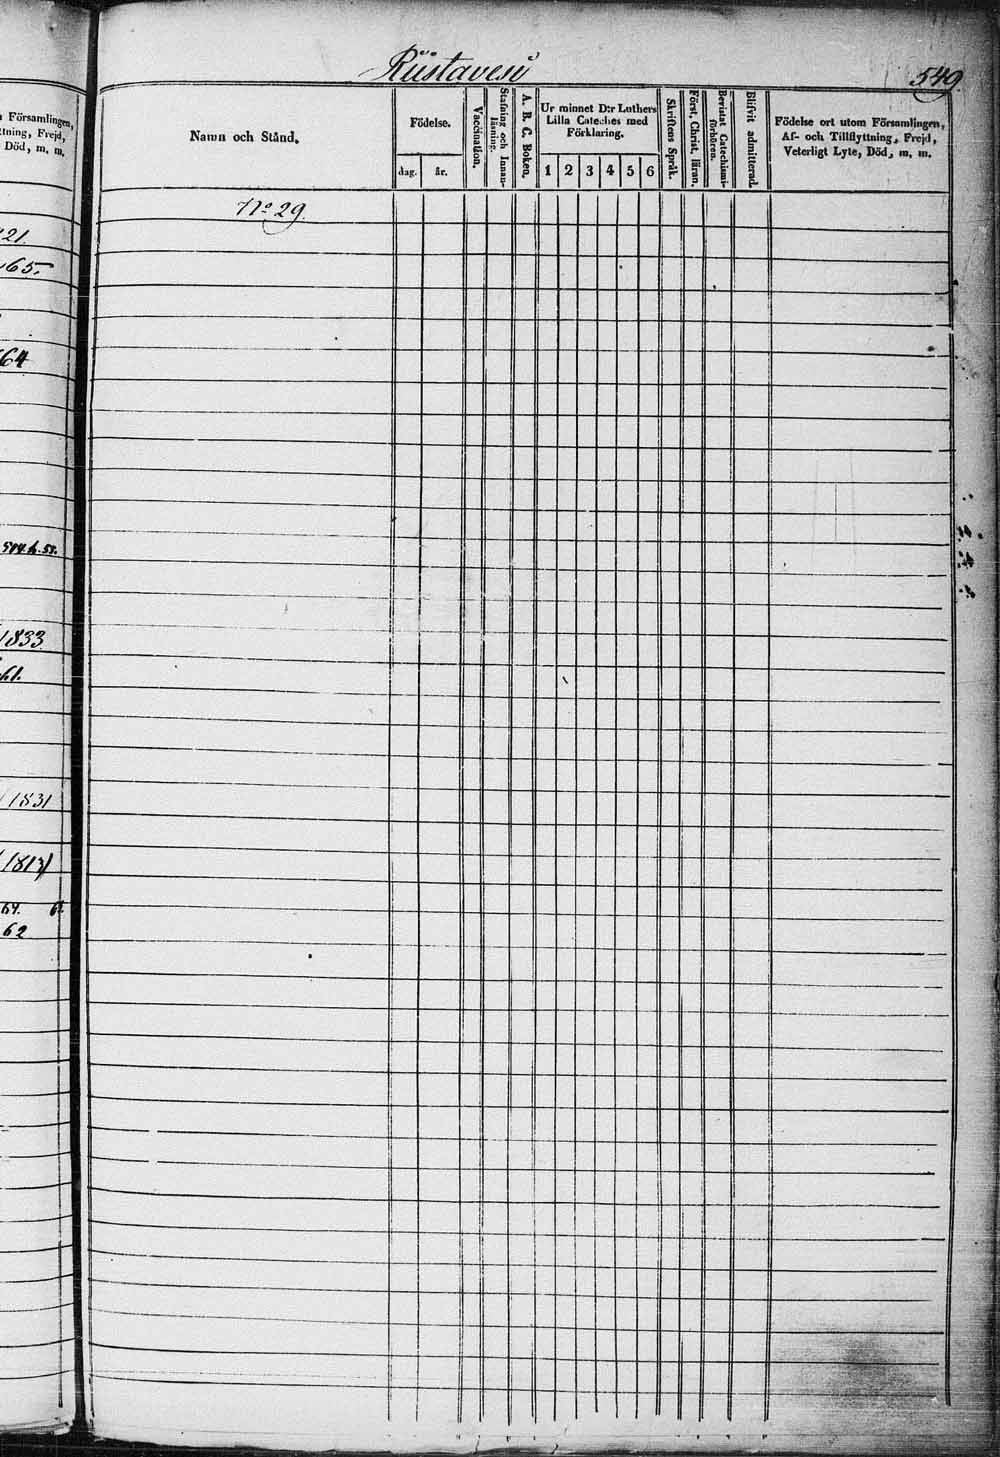 Församlingen,
ttning, Frejd,
Död, m. m.
21.
65.
64
504. h. 55.
1833
61.
1831
1813)
64. 6.
62
Riistavesi
549.
Namn och Stånd.
Födelse.
dag. år.
Vaccination.
Stafning och Innanläsning.
A. B. C. Boken.
Ur minnet D:r Luthers
Lilla Cateches med
Förklaring.
1 2 3 4 5 6
Skriftens Språk.
Först. Christ. läran.
Bevistat Catechismi-
förhören.
Blifvit admitterad.
Födelse ort utom Församlingen,
Af- och Tillflyttning, Frejd,
Veterligt Lyte, Död, m. m.
No 29.